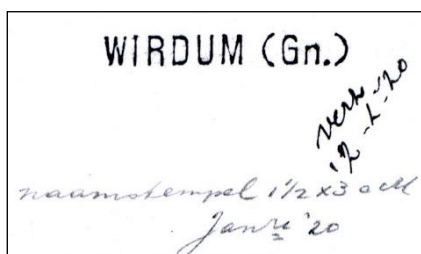 WIRDUM (Gn.)
Verz
12-1-20
naamstempel 1½ x 3 cM
Janri '20